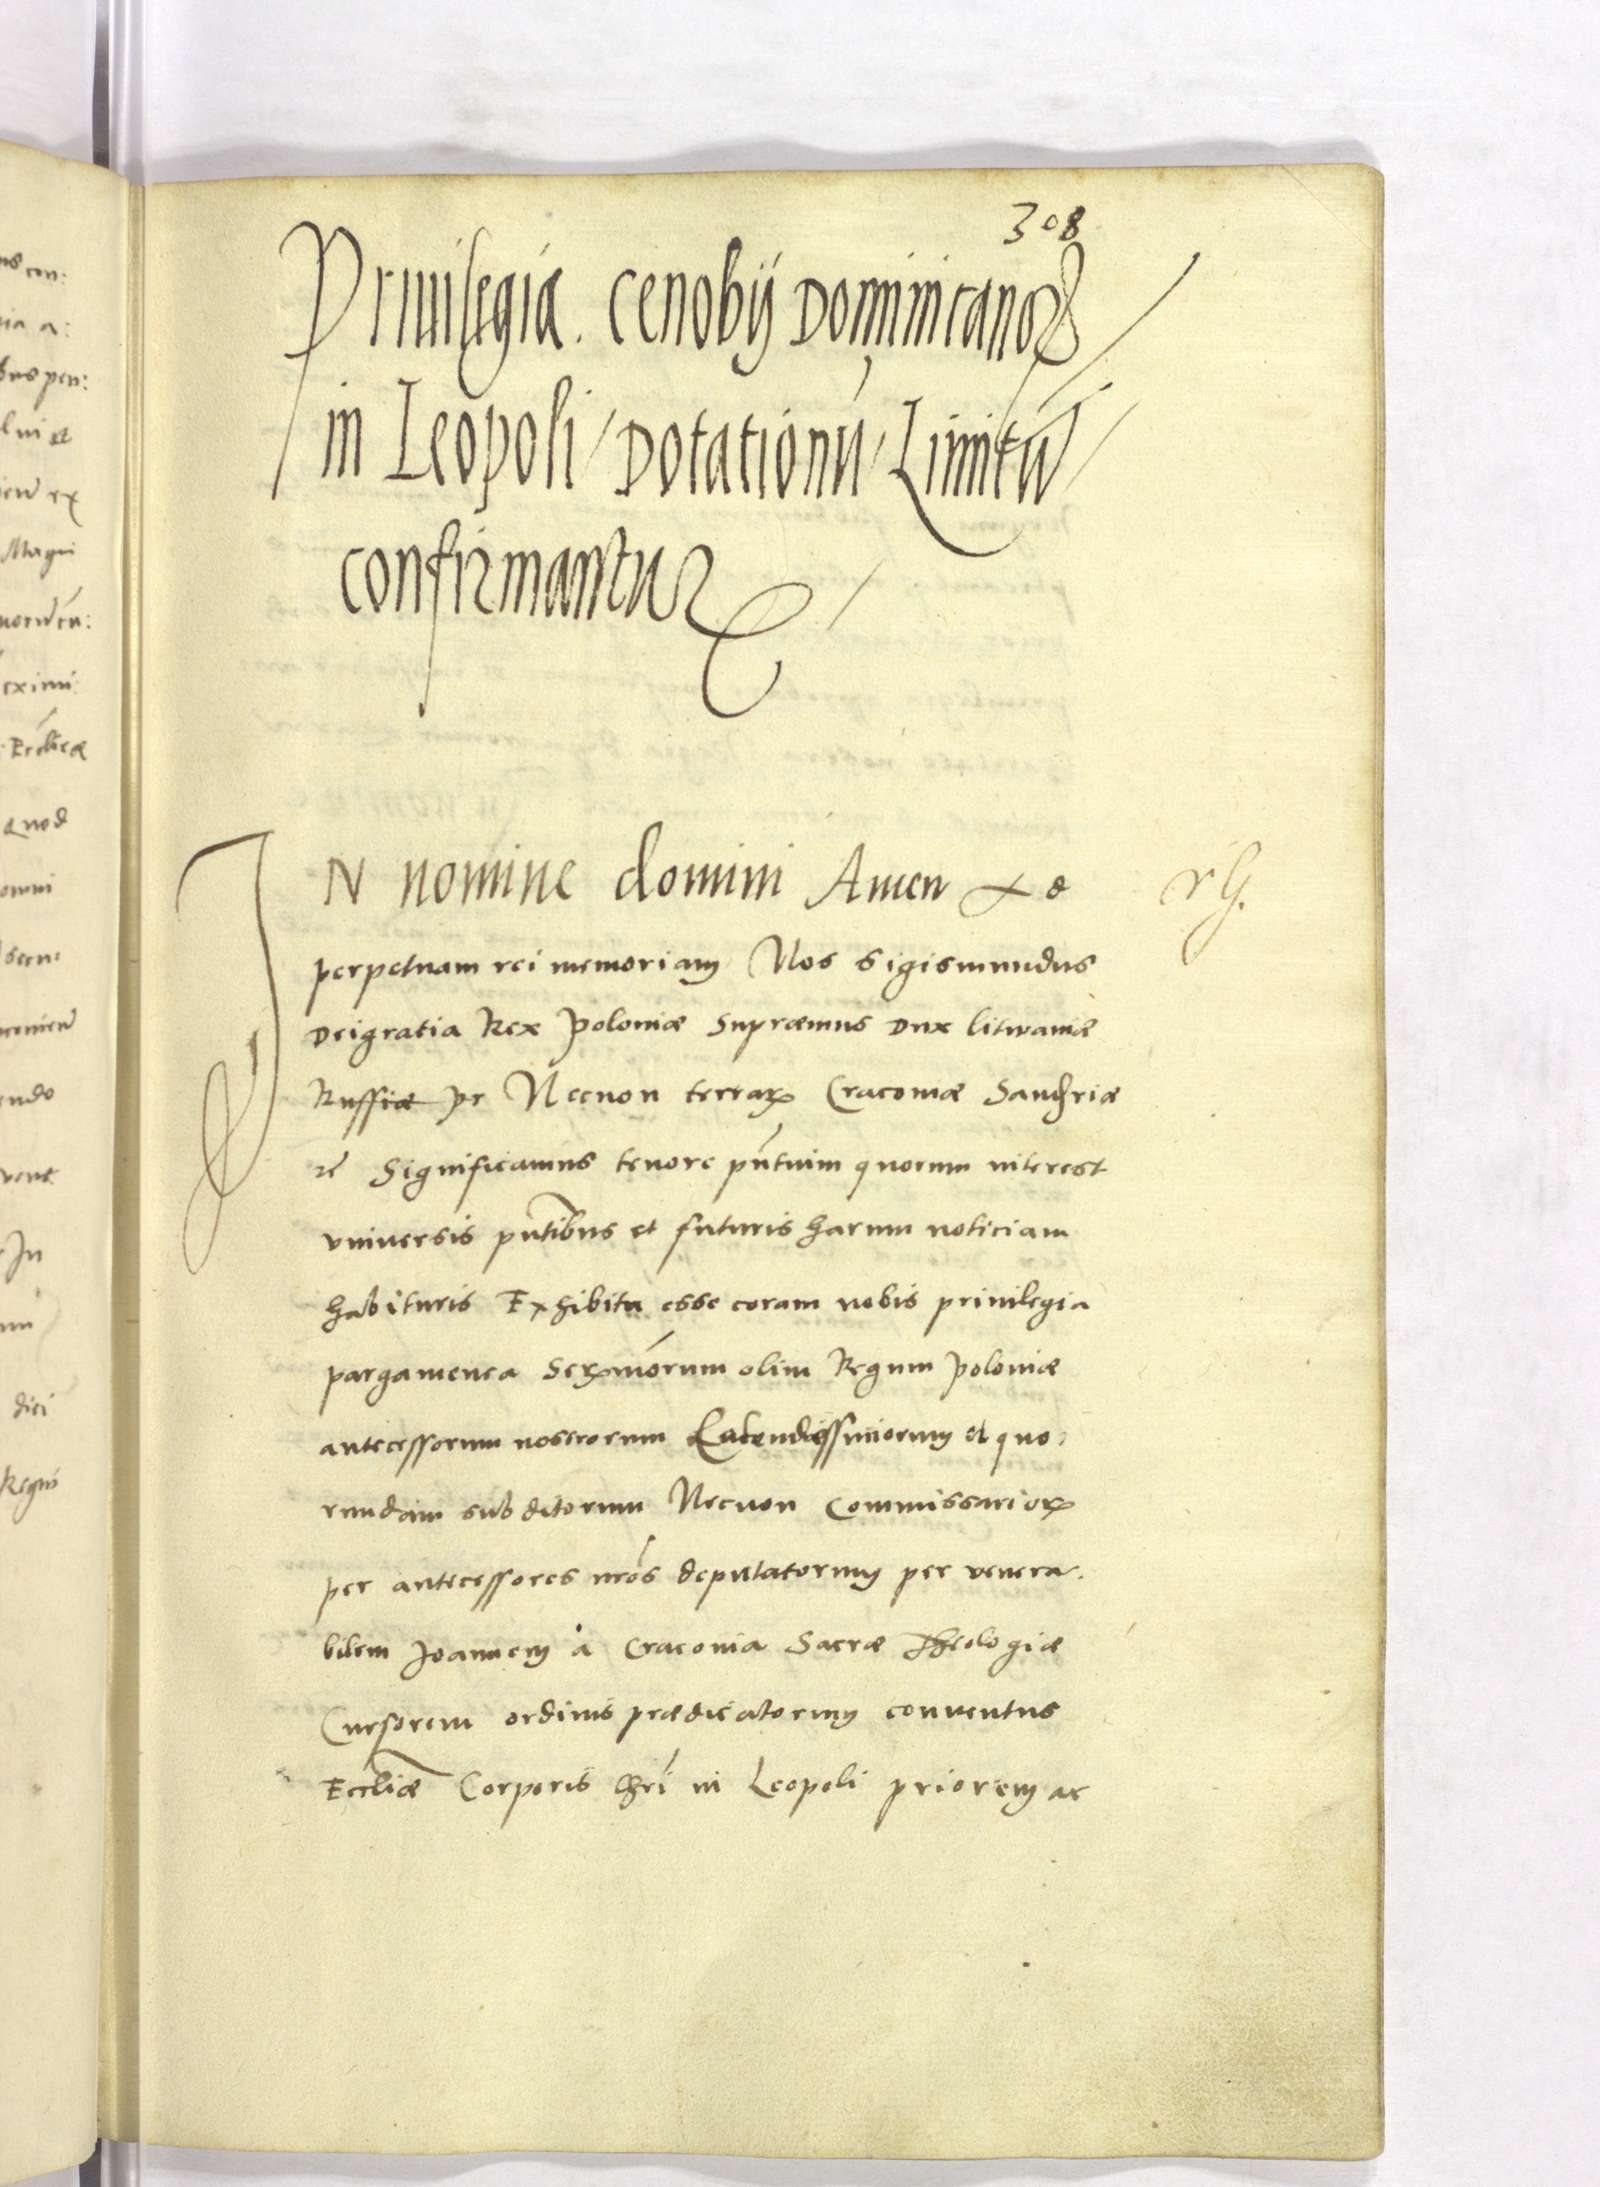 308
Priuilegia. Cenobÿ Dominicanoꝝ
in Leopoli / Dotationū / Limitū /
confirmantur /
IN nomine domini Amen
perpetuam rei memoriam Nos Sigismundus
Dei gratia Rex Poloniæ Supræmus Dux Litwaniæ
Russiæ Necnon terraꝝ Cracoviæ
Significamus tenore pn̄tium quorum interest
vniuersis pn̄tibus et futuris harum noticiam
habituris Exhibita esse coram nobis priuilegia
pargamenea olim Regum Poloniæ
antecessorum nostrorum et quo:
rundam subditorum Necnon Commissarioꝝ
per antecessores nr̄os deputatorum per venera.
bilem Joannem à Cracouia Sacræ Theologiæ
Cursorem ordinis prædicatorum conuentus
Eccl̄iæ Corporis Chr̄i in Leopoli priorem ac